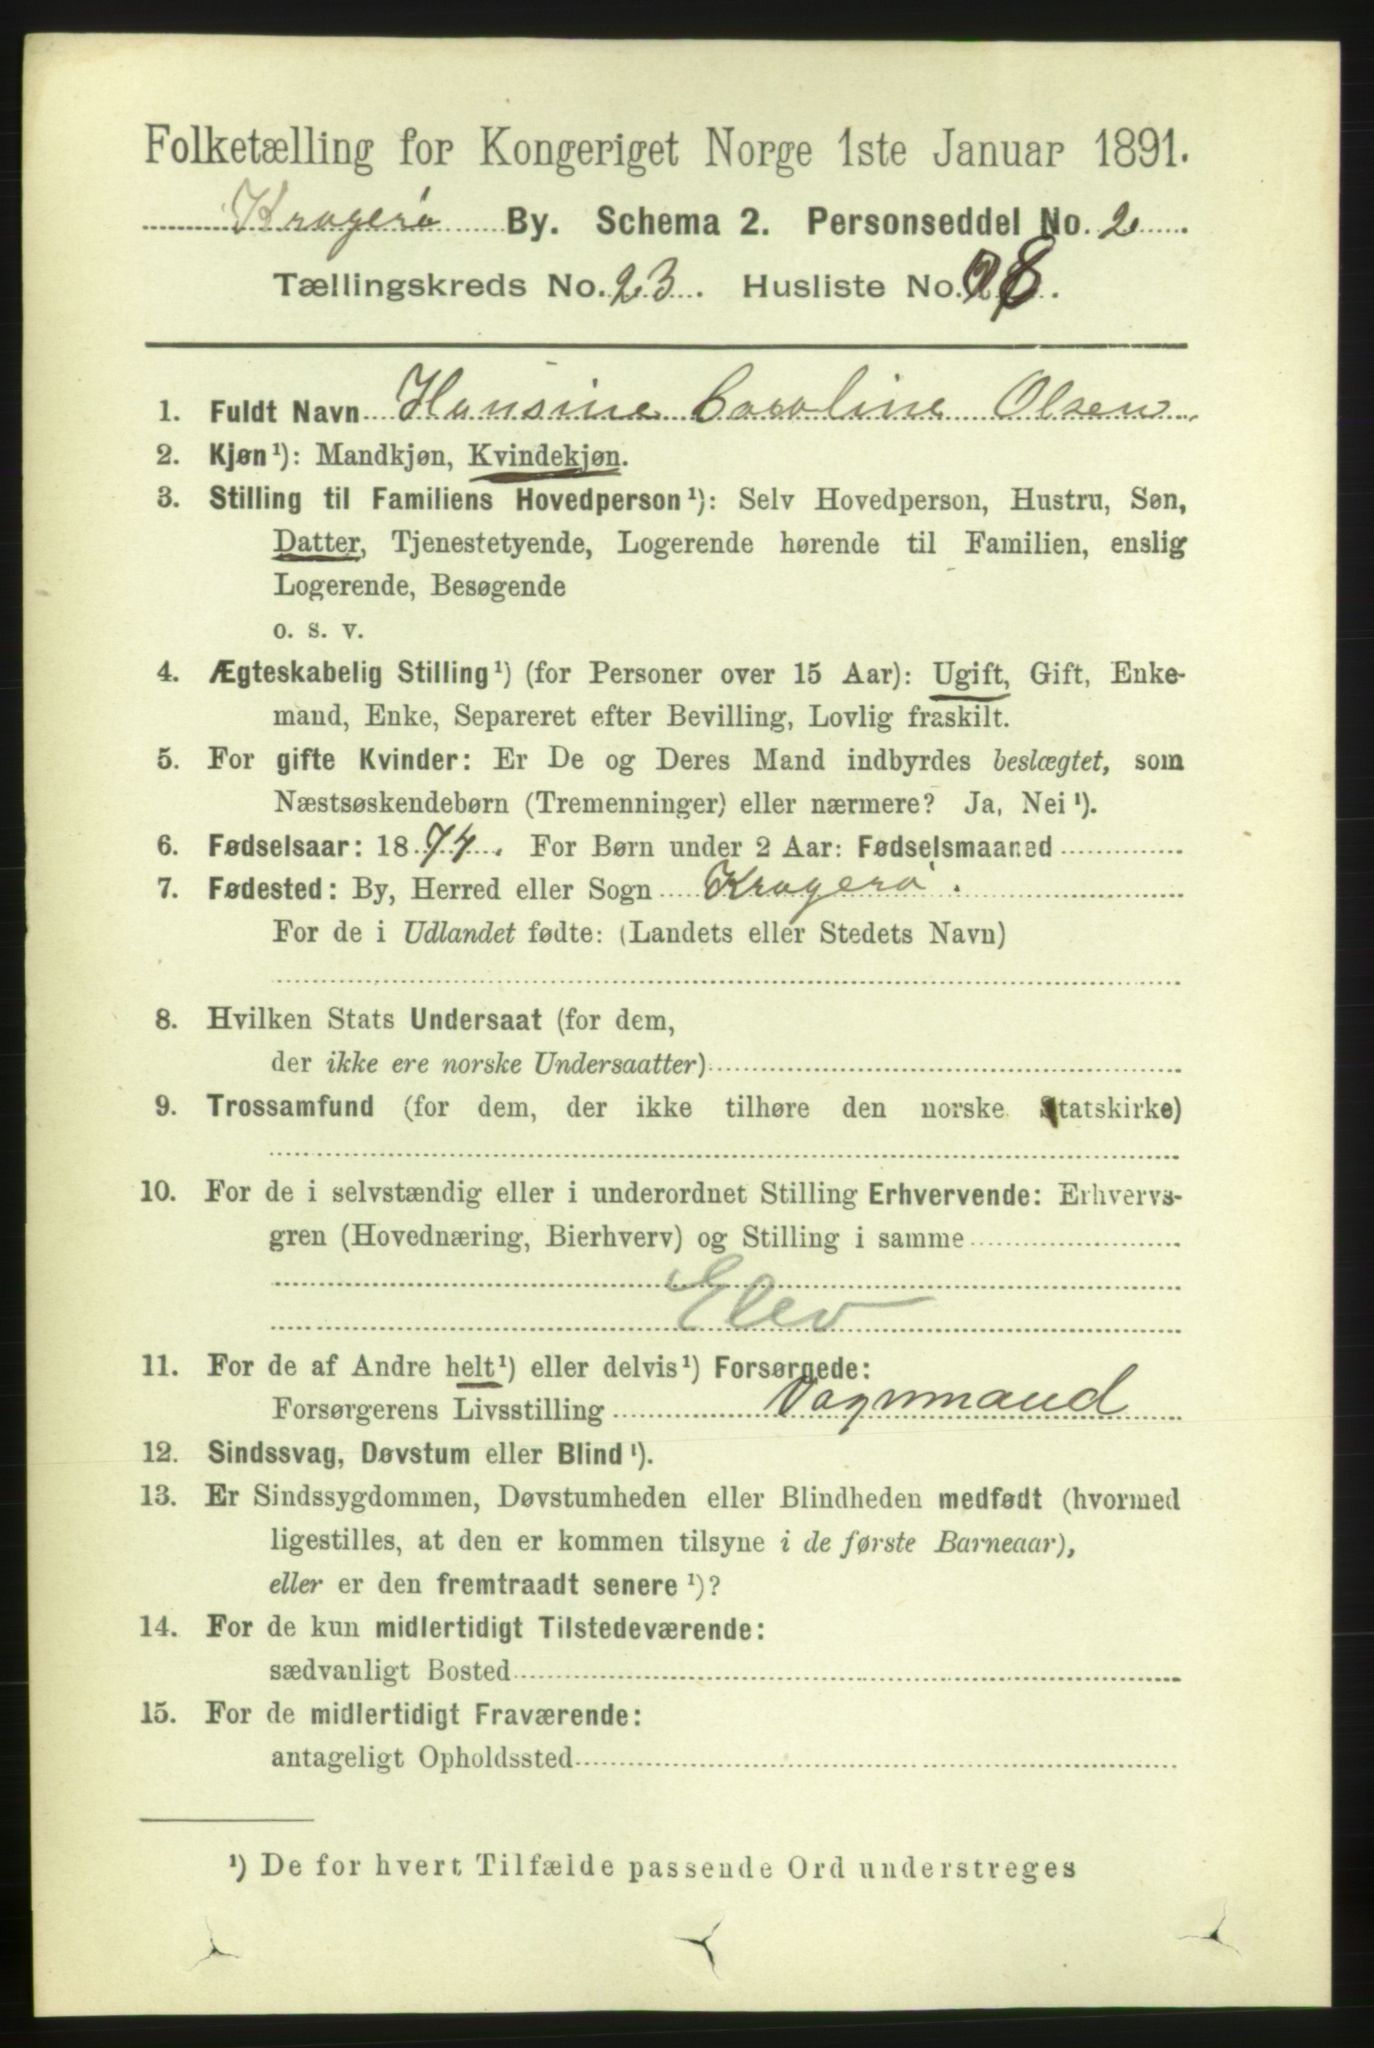 Folketælling for Kongeriget Norge 1ste Januar 1891.
Kragerø By. Schema 2. Personseddel No. 2
Tællingskreds No. 23. Husliste No. 8.
1. Fuldt Navn Hansine Caroline Olsen
2. Kjøn¹): Mandkjøn, Kvindekjøn.
3. Stilling til Familiens Hovedperson¹): Selv Hovedperson, Hustru, Søn,
Datter, Tjenestetyende, Logerende hørende til Familien, enslig
Logerende, Besøgende
o. s. v.
4. Ægteskabelig Stilling¹) (for Personer over 15 Aar): Ugift, Gift, Enke-
mand, Enke, Separeret efter Bevilling, Lovlig fraskilt.
5. For gifte Kvinder: Er De og Deres Mand indbyrdes beslægtet, som
Næstsøskendebørn (Tremenninger) eller nærmere? Ja, Nei¹).
6. Fødselsaar: 1874. For Børn under 2 Aar: Fødselsmaaned
7. Fødested: By, Herred eller Sogn Kragerø.
For de i Udlandet fødte: (Landets eller Stedets Navn)
8. Hvilken Stats Undersaat (for dem,
der ikke ere norske Undersaatter)
9. Trossamfund (for dem, der ikke tilhøre den norske Statskirke)
10. For de i selvstændig eller i underordnet Stilling Erhvervende: Erhvervs-
gren (Hovednæring, Bierhverv) og Stilling i samme
Elev
11. For de af Andre helt¹) eller delvis¹) Forsørgede:
Forsørgerens Livsstilling Vognmand
12. Sindssvag, Døvstum eller Blind¹).
13. Er Sindssygdommen, Døvstumheden eller Blindheden medfødt (hvormed
ligestilles, at den er kommen tilsyne i de første Barneaar),
eller er den fremtraadt senere¹)?
14. For de kun midlertidigt Tilstedeværende:
sædvanligt Bosted
15. For de midlertidigt Fraværende:
antageligt Opholdssted
¹) De for hvert Tilfælde passende Ord understreges